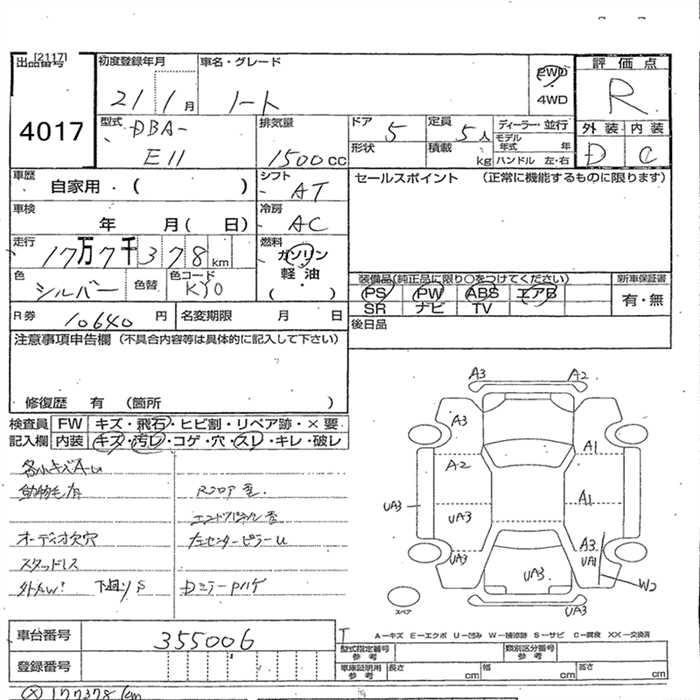 [2117]
出品番号
4017
初度登録年月
21 1月
車名・グレード
ノート
2WD
4WD
評価点
R
外装 内装
D C
型式
DBA-
E11
排気量
1500cc
ドア 5
定員 5人
形状
積載 kg
ディーラー・並行
モデル年式 年
ハンドル 左・右
車歴
自家用・( )
シフト AT
セールスポイント (正常に機能するものに限ります)
車検
年 月( 日)
冷房 AC
走行
17万7千378km
燃料
ガソリン
軽油
( ・ )
色 シルバー
色替
色コード KY0
装備品(純正品に限り○をつけてください)
PS PW ABS エアB
SR ナビ TV
新車保証書
有・無
R券 10640円
名変期限 月 日
後日品
注意事項申告欄(不具合内容等は具体的に記入して下さい)
修復歴 有 (箇所 )
検査員 FW キズ・飛石・ヒビ割・リペア跡・×要
記入欄 内装 キズ・汚レ・コゲ・穴・スレ・キレ・破レ
各小キズAU
動物毛有
Rフロア歪
エンドパネル歪
オーディオ欠穴
左センターピラーU
スタッドレス
外カW' 下廻りS
DミラーPハゲ
A3 A2
A3
A1
A2
A1
UA3
UA3
A3
UA3
UA1
UA3
W2
UA3
スペア
車台番号 355006
登録番号
T
A-キズ E-エクボ U-凹み W-補修跡 S-サビ C-腐食 XX-交換済
型式指定番号
参考
類別区分番号
参考
車庫証明用
参考
長さ cm
幅 cm
高さ cm
(X)177378km